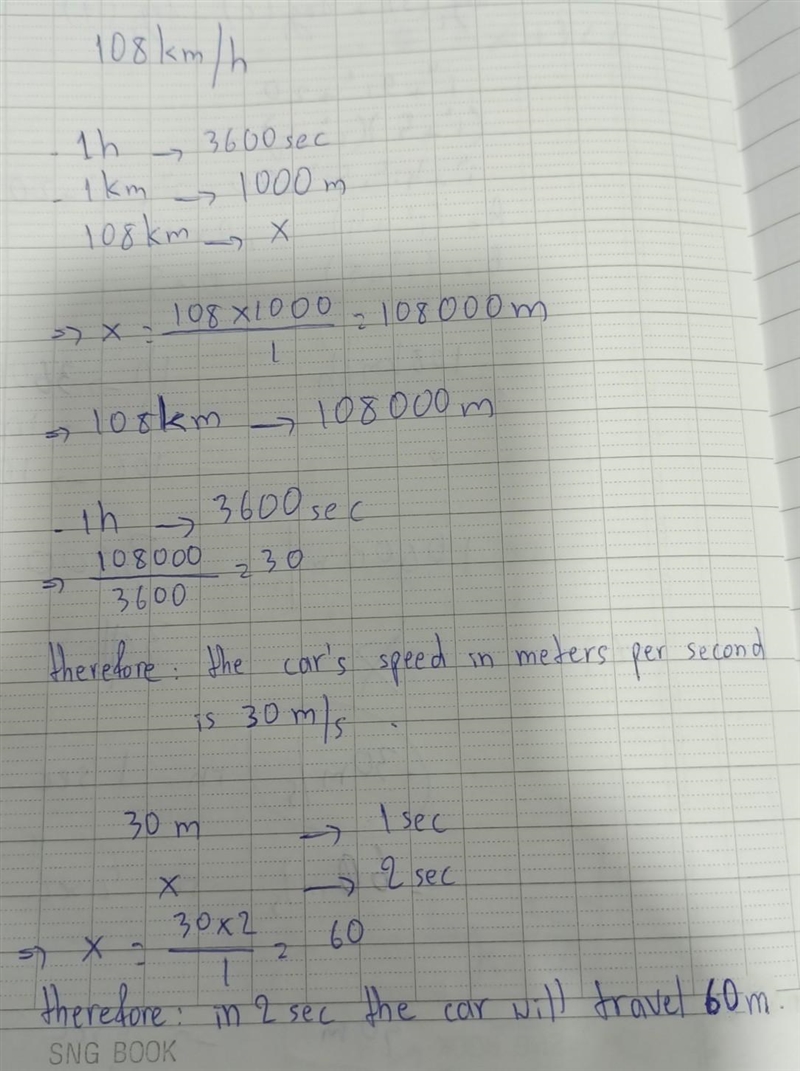 108 km/h
- 1h → 3600 sec
- 1km → 1000 m
108 km → x
⇒ x = 108 x 1000 / 1 = 108000 m
⇒ 108 km → 108000 m
- 1h → 3600 sec
⇒ 108000 / 3600 = 30
therefore: the car's speed in meters per second
is 30 m/s .
30 m → 1 sec
x → 2 sec
⇒ x = 30 x 2 / 1 = 60
therefore: in 2 sec the car will travel 60 m.
SNG BOOK